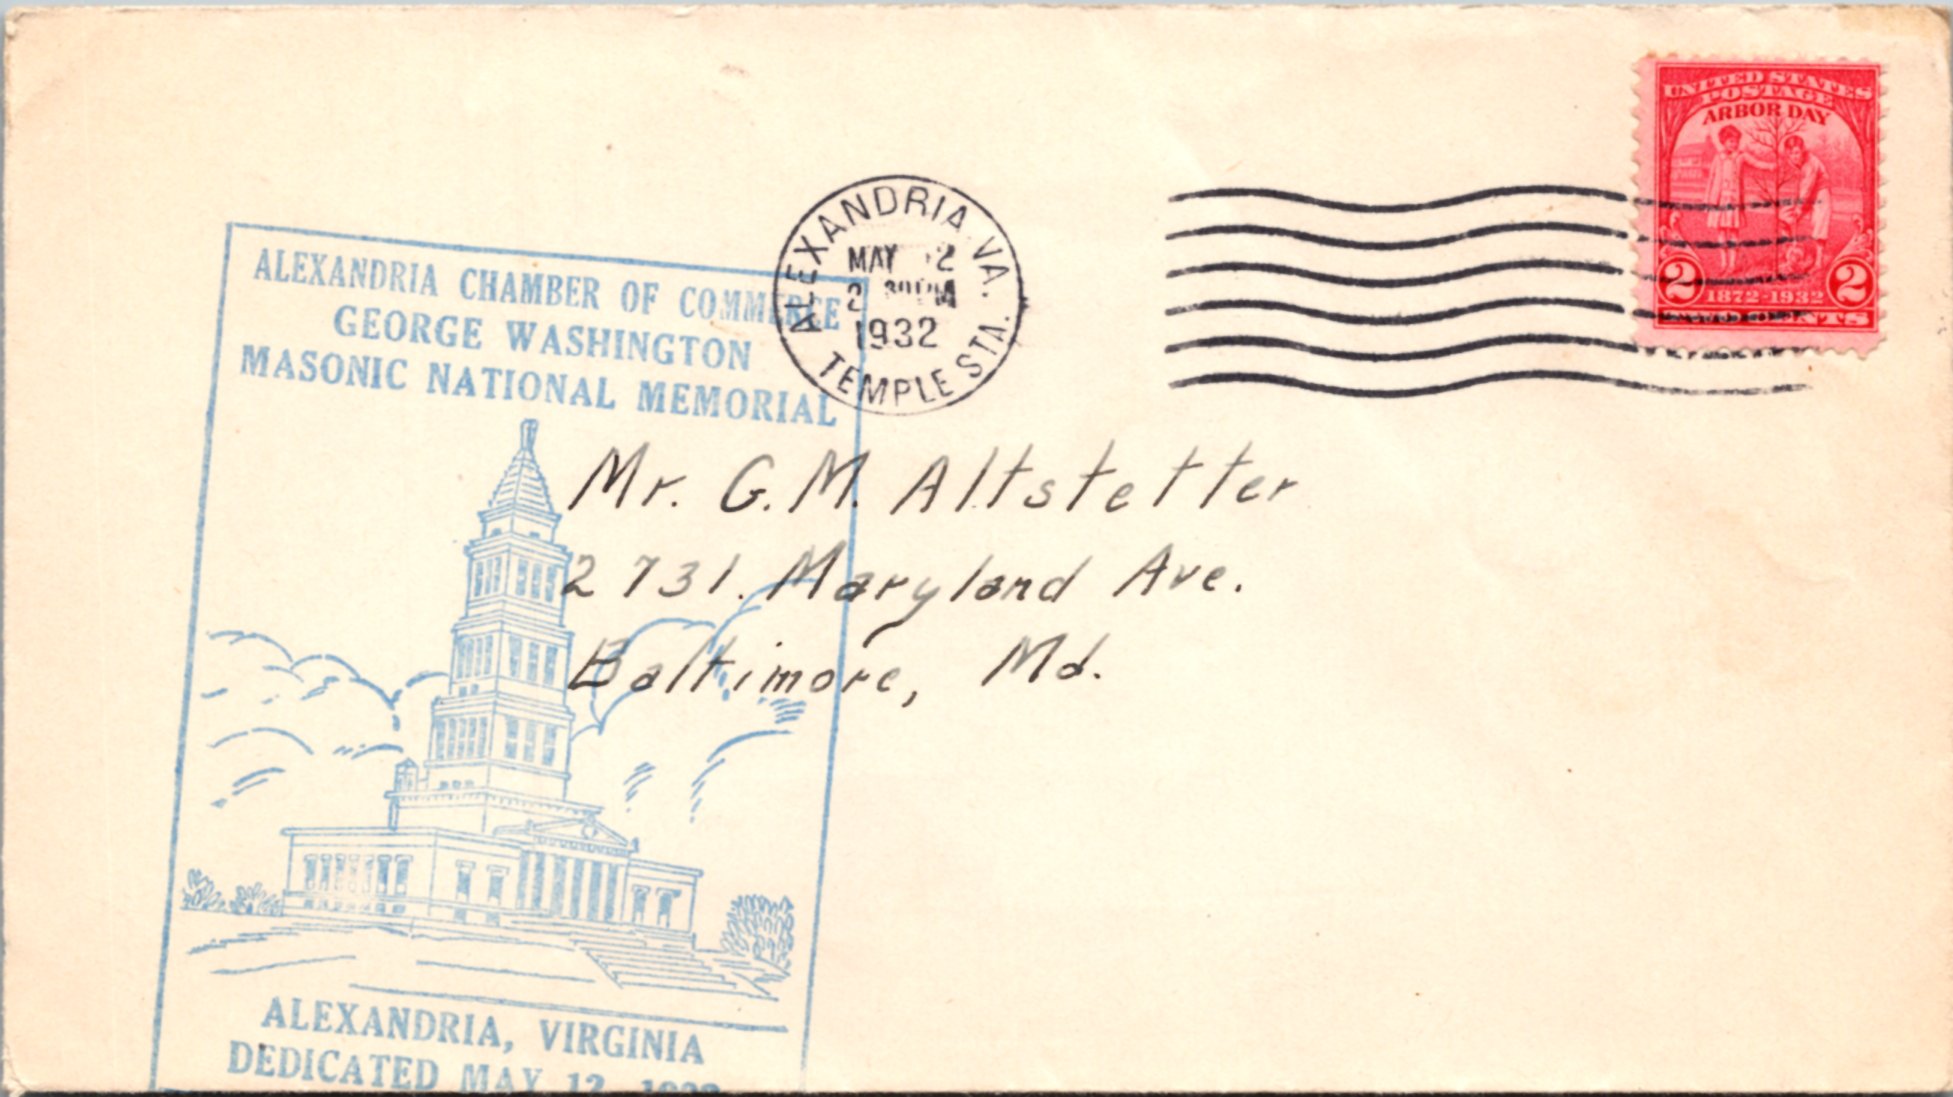 ALEXANDRIA CHAMBER OF COMMERCE
GEORGE WASHINGTON
MASONIC NATIONAL MEMORIAL
ALEXANDRIA, VIRGINIA
DEDICATED MAY 12, 1932
ALEXANDRIA, VA.
MAY 12
2 30 PM
1932
TEMPLE STA.
UNITED STATES
POSTAGE
ARBOR DAY
2 1872-1932 2
CENTS
Mr. G. M. Altstetter
2731. Maryland Ave.
Baltimore, Md.